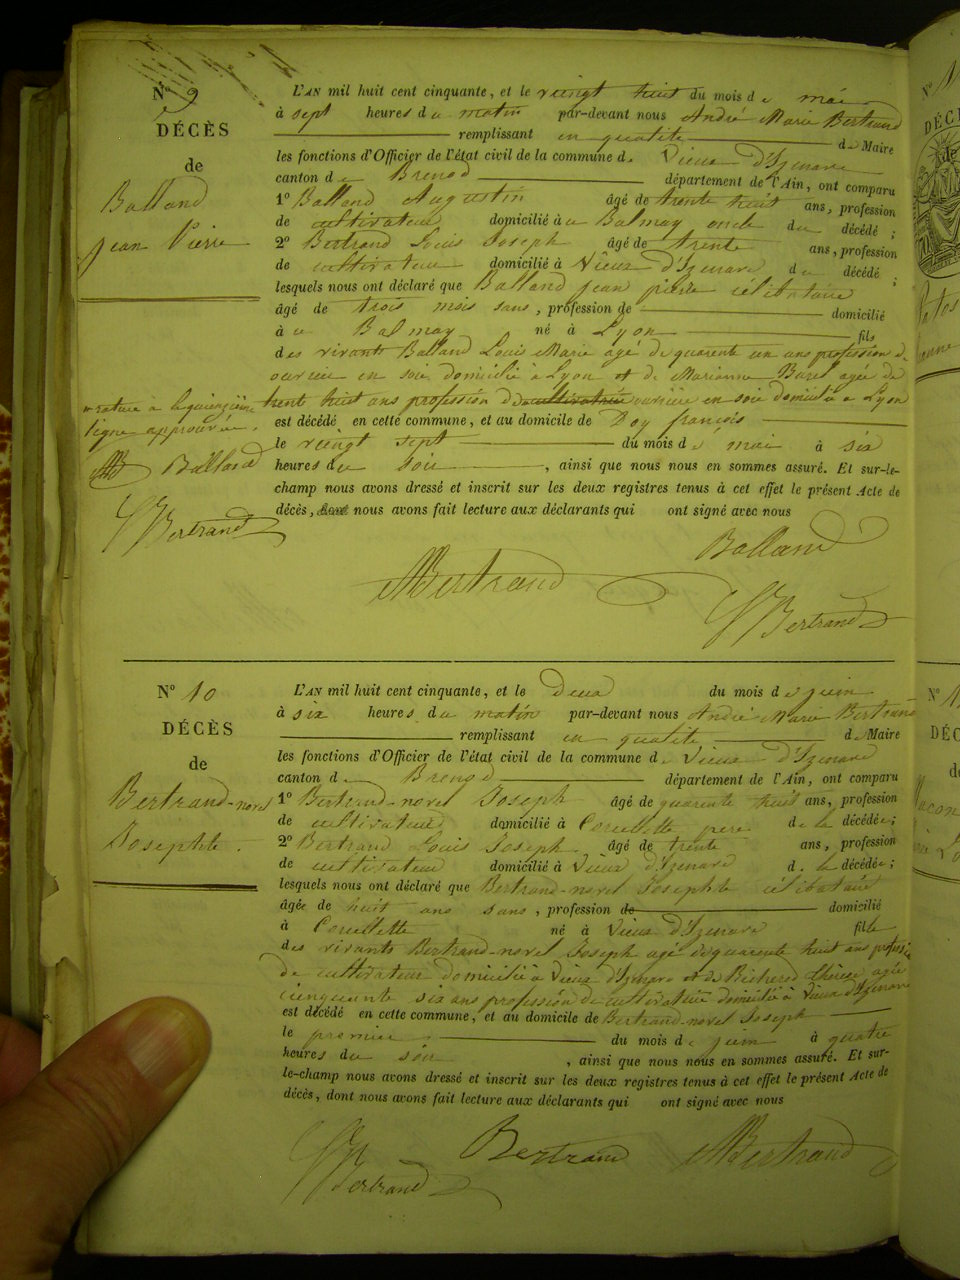 N° 9
DÉCÈS
de
Balland
Jean Pierre
L'AN mil huit cent cinquante, et le veingt huit du mois de mai
à sept heures du matin par-devant nous André Marie Bertrand
remplissant en qualité de Maire
les fonctions d'Officier de l'état civil de la commune de Vieux d'Izenave
canton de Brenod département de l'Ain, ont comparu
1° Balland Augustin âgé de trente huit ans, profession
de cultivateur domicilié à Balmay oncle du décédé ;
2° Bertrand Louis Joseph âgé de trente ans, profession
de cultivateur domicilié à Vieux d'Izenave du décédé ;
lesquels nous ont déclaré que Balland Jean pierre célibataire
âgé de trois mois sans, profession de domicilié
à Balmay né à Lyon fils
des vivants Balland Louis Marie agé de quarente un ans profession d
ouvrier en soie domicilié à Lyon et de Marianne agée de
trent huit ans profession d cultivatrice ouvriere en soie domiciliée a Lyon
est décédé en cette commune, et au domicile de Doy françois
le veingt sept du mois de mai à six
heures du soir, ainsi que nous nous en sommes assuré. Et sur-le-
champ nous avons dressé et inscrit sur les deux registres tenus à cet effet le présent Acte de
décès, dont nous avons fait lecture aux déclarants qui ont signé avec nous
rature à la quinzième
ligne approuvée.
Balland
Bertrand
Balland
Bertrand
Bertrand
N° 10
DÉCÈS
de
Bertrand-novel
Josephte.
L'AN mil huit cent cinquante, et le deux du mois de juin
à six heures du matin par-devant nous André Marie Bertrand
remplissant en qualité de Maire
les fonctions d'Officier de l'état civil de la commune de Vieux d'Izenave
canton de Brenod département de l'Ain, ont comparu
1° Bertrand-novel Joseph âgé de quarente huit ans, profession
de cultivateur domicilié à père de la décédée;
2° Bertrand Louis Joseph âgé de trente ans, profession
de cultivateur domicilié à Vieux d'Izenave d. la décédée;
lesquels nous ont déclaré que Bertrand-novel Josephte célibataire
âgée de huit ans sans, profession de domicilié
à né à Vieux d'Izenave fille
des vivants Bertrand-novel Joseph agé de quarente huit ans professi
de cultivateur domicilié à Vieux d'Izenave et de agée
cienquante six ans profession de cultivatrice domiciliée à Vieux d'Izenave
est décédé en cette commune, et au domicile de Bertrand-novel Joseph
le premier du mois de juin à quatre
heures du soir, ainsi que nous nous en sommes assuré. Et sur-
le-champ nous avons dressé et inscrit sur les deux registres tenus à cet effet le présent Acte de
décès, dont nous avons fait lecture aux déclarants qui ont signé avec nous
Bertrand
Bertrand
Bertrand
N°
DÉC
N° 1
DÉC
de